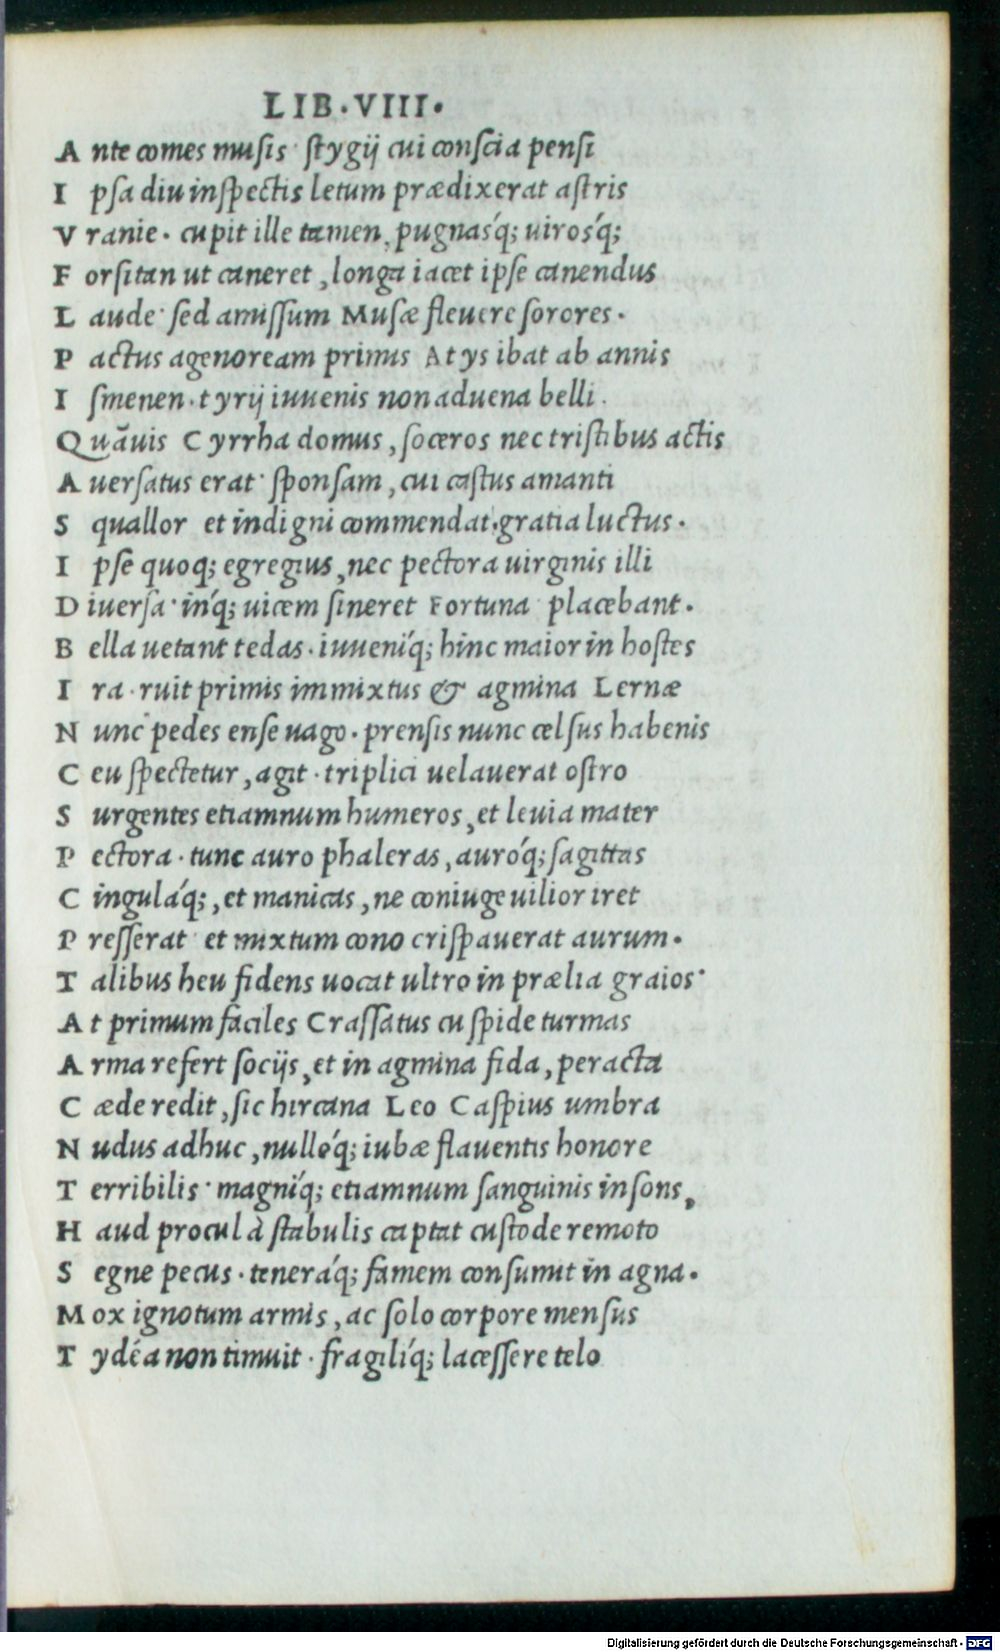 LIB.VIII.
Ante comes musis· stygij cui conscia pensi
Ipsa diu inspectis letum prædixerat astris
Vranie. cupit ille tamen, pugnasq́; uirosq́;
Forsitan ut caneret, longa iacet ipse canendus
Laude· sed amissum Musæ fleuere sorores.
Pactus agenoream primis Atys ibat ab annis
Ismenen. tyrij iuuenis non aduena belli.
Quãuis Cyrrha domus, soceros nec tristibus actis
Auersatus erat· sponsam, cui castus amanti
Squallor et indigni commendat.gratia luctus.
Ipse quoq; egregius, nec pectora uirginis illi
Diuersa· inq́; uicem sineret Fortuna placebant.
Bella uetant tedas. iuueniq́; hinc maior in hostes
Ira. ruit primis immixtus & agmina Lernæ
Nunc pedes ense uago. prensis nunc celsus habenis
Ceu spectetur, agit. triplici uelauerat ostro
Surgentes etiamnum humeros, et leuia mater
Pectora. tunc auro phaleras, auroq́; sagittas
Cingulaq́;, et manicas, ne coniuge uilior iret
Presserat et mixtum cono crispauerat aurum.
Talibus heu fidens uocat ultro in prælia graios·
At primum faciles Crassatus cuspide turmas
Arma refert socijs, et in agmina fida, peracta
Cæde redit, sic hircana Leo Caspius umbra
Nudus adhuc, nulloq́; iubæ flauentis honore
Terribilis· magniq́; etiamnum sanguinis insons,
Haud procul à stabulis captat custode remoto
Segne pecus. teneraq́; famem consumit in agna.
Mox ignotum armis, ac solo corpore mensus
Tydéa non timuit. fragiliq́; lacessere telo
Digitalisierung gefördert durch die Deutsche Forschungsgemeinschaft - DFG